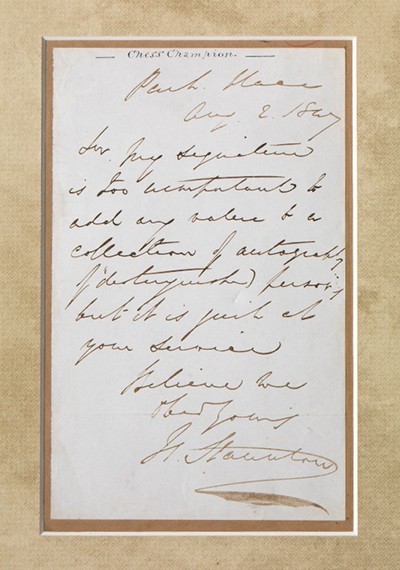 Chess Champion.
Park Place
Aug 2. 1847
Sir, My signature
is too unimportant to
add any value to a
collection of autographs
of "distinguished" persons
but it is quite at
your service
Believe me
Yours
H. Staunton